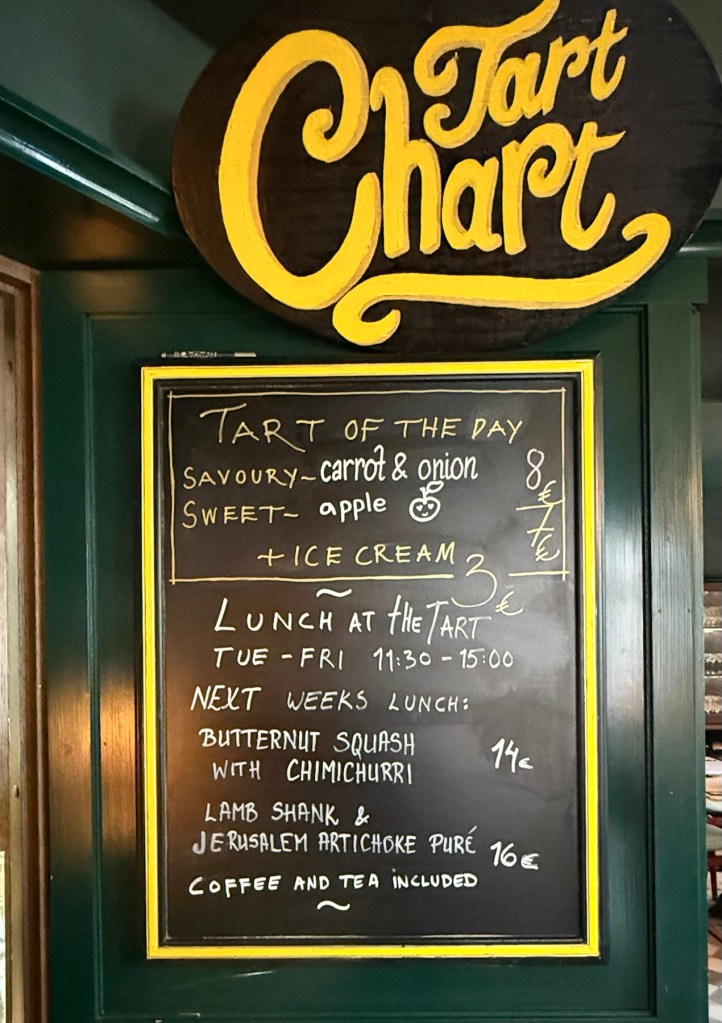 Tart
Chart
TART OF THE DAY
SAVOURY~ carrot & onion 8€
SWEET~ apple 7€
+ ICE CREAM 3€
~
LUNCH AT tHE TART
TUE - FRI 11:30 - 15:00
NEXT WEEKS LUNCH:
BUTTERNUT SQUASH
WITH CHIMICHURRI 14€
LAMB SHANK &
JERUSALEM ARTICHOKE PURÉ 16€
COFFEE AND TEA INCLUDED
~